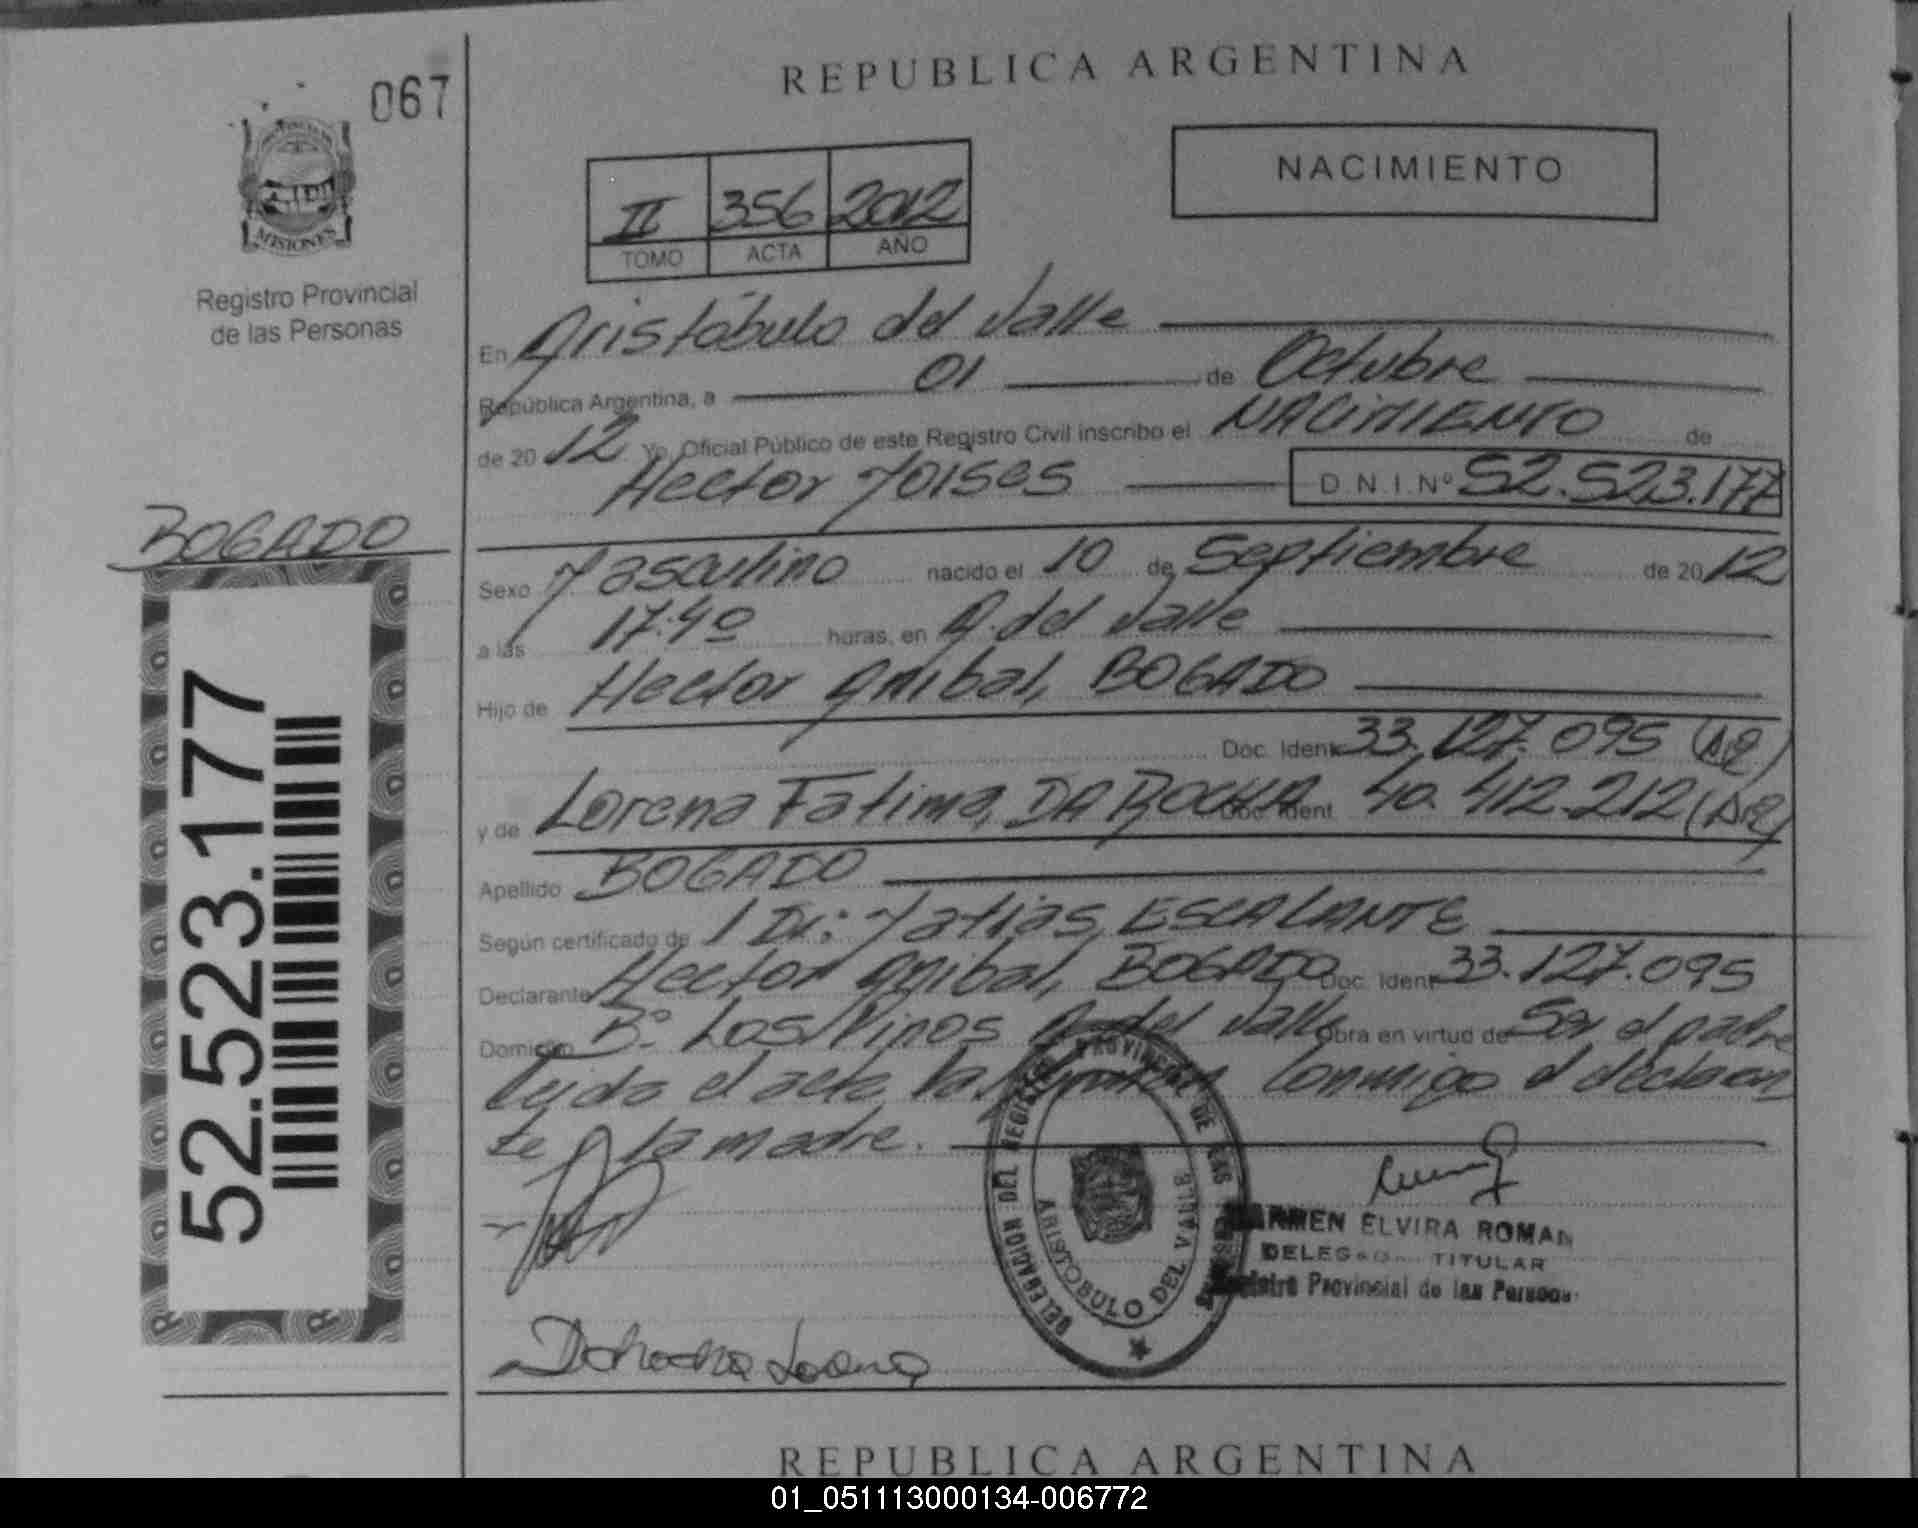 067
REPUBLICA ARGENTINA
NACIMIENTO
II 356 2012
TOMO ACTA AÑO
MISIONES
Registro Provincial
de las Personas
En Aristóbulo del Valle
República Argentina, a 01 de Octubre
de 2012 Yo, Oficial Público de este Registro Civil inscribo el NACIMIENTO de
Hector Moises D.N.I.Nº 52.523.177
BOGADO
52.523.177
Sexo Masculino nacido el 10 de Septiembre de 2012
a las 17:40 horas, en A. del Valle
Hijo de Hector Anibal, BOGADO
Doc. Ident. 33.127.095 (AR)
y de Lorena Fatima, DA ROCHA Doc. Ident. 40.412.212 (AR)
Apellido BOGADO
Según certificado de Dr: Matias, ESCALANTE
Declarante Hector Anibal, BOGADO Doc. Ident. 33.127.095
Domicilio Bº Los Pinos A. del Valle Obra en virtud de Ser el padre
Leyda el acta la firman conmigo el declaran
te y la madre.
DELEGACION DEL REGISTRO PROVINCIAL DE LAS PERSONAS
ARISTOBULO DEL VALLE
CARMEN ELVIRA ROMAN
DELEGADA TITULAR
Registro Provincial de las Personas
Darocha Lorena
REPUBLICA ARGENTINA
01_051113000134-006772